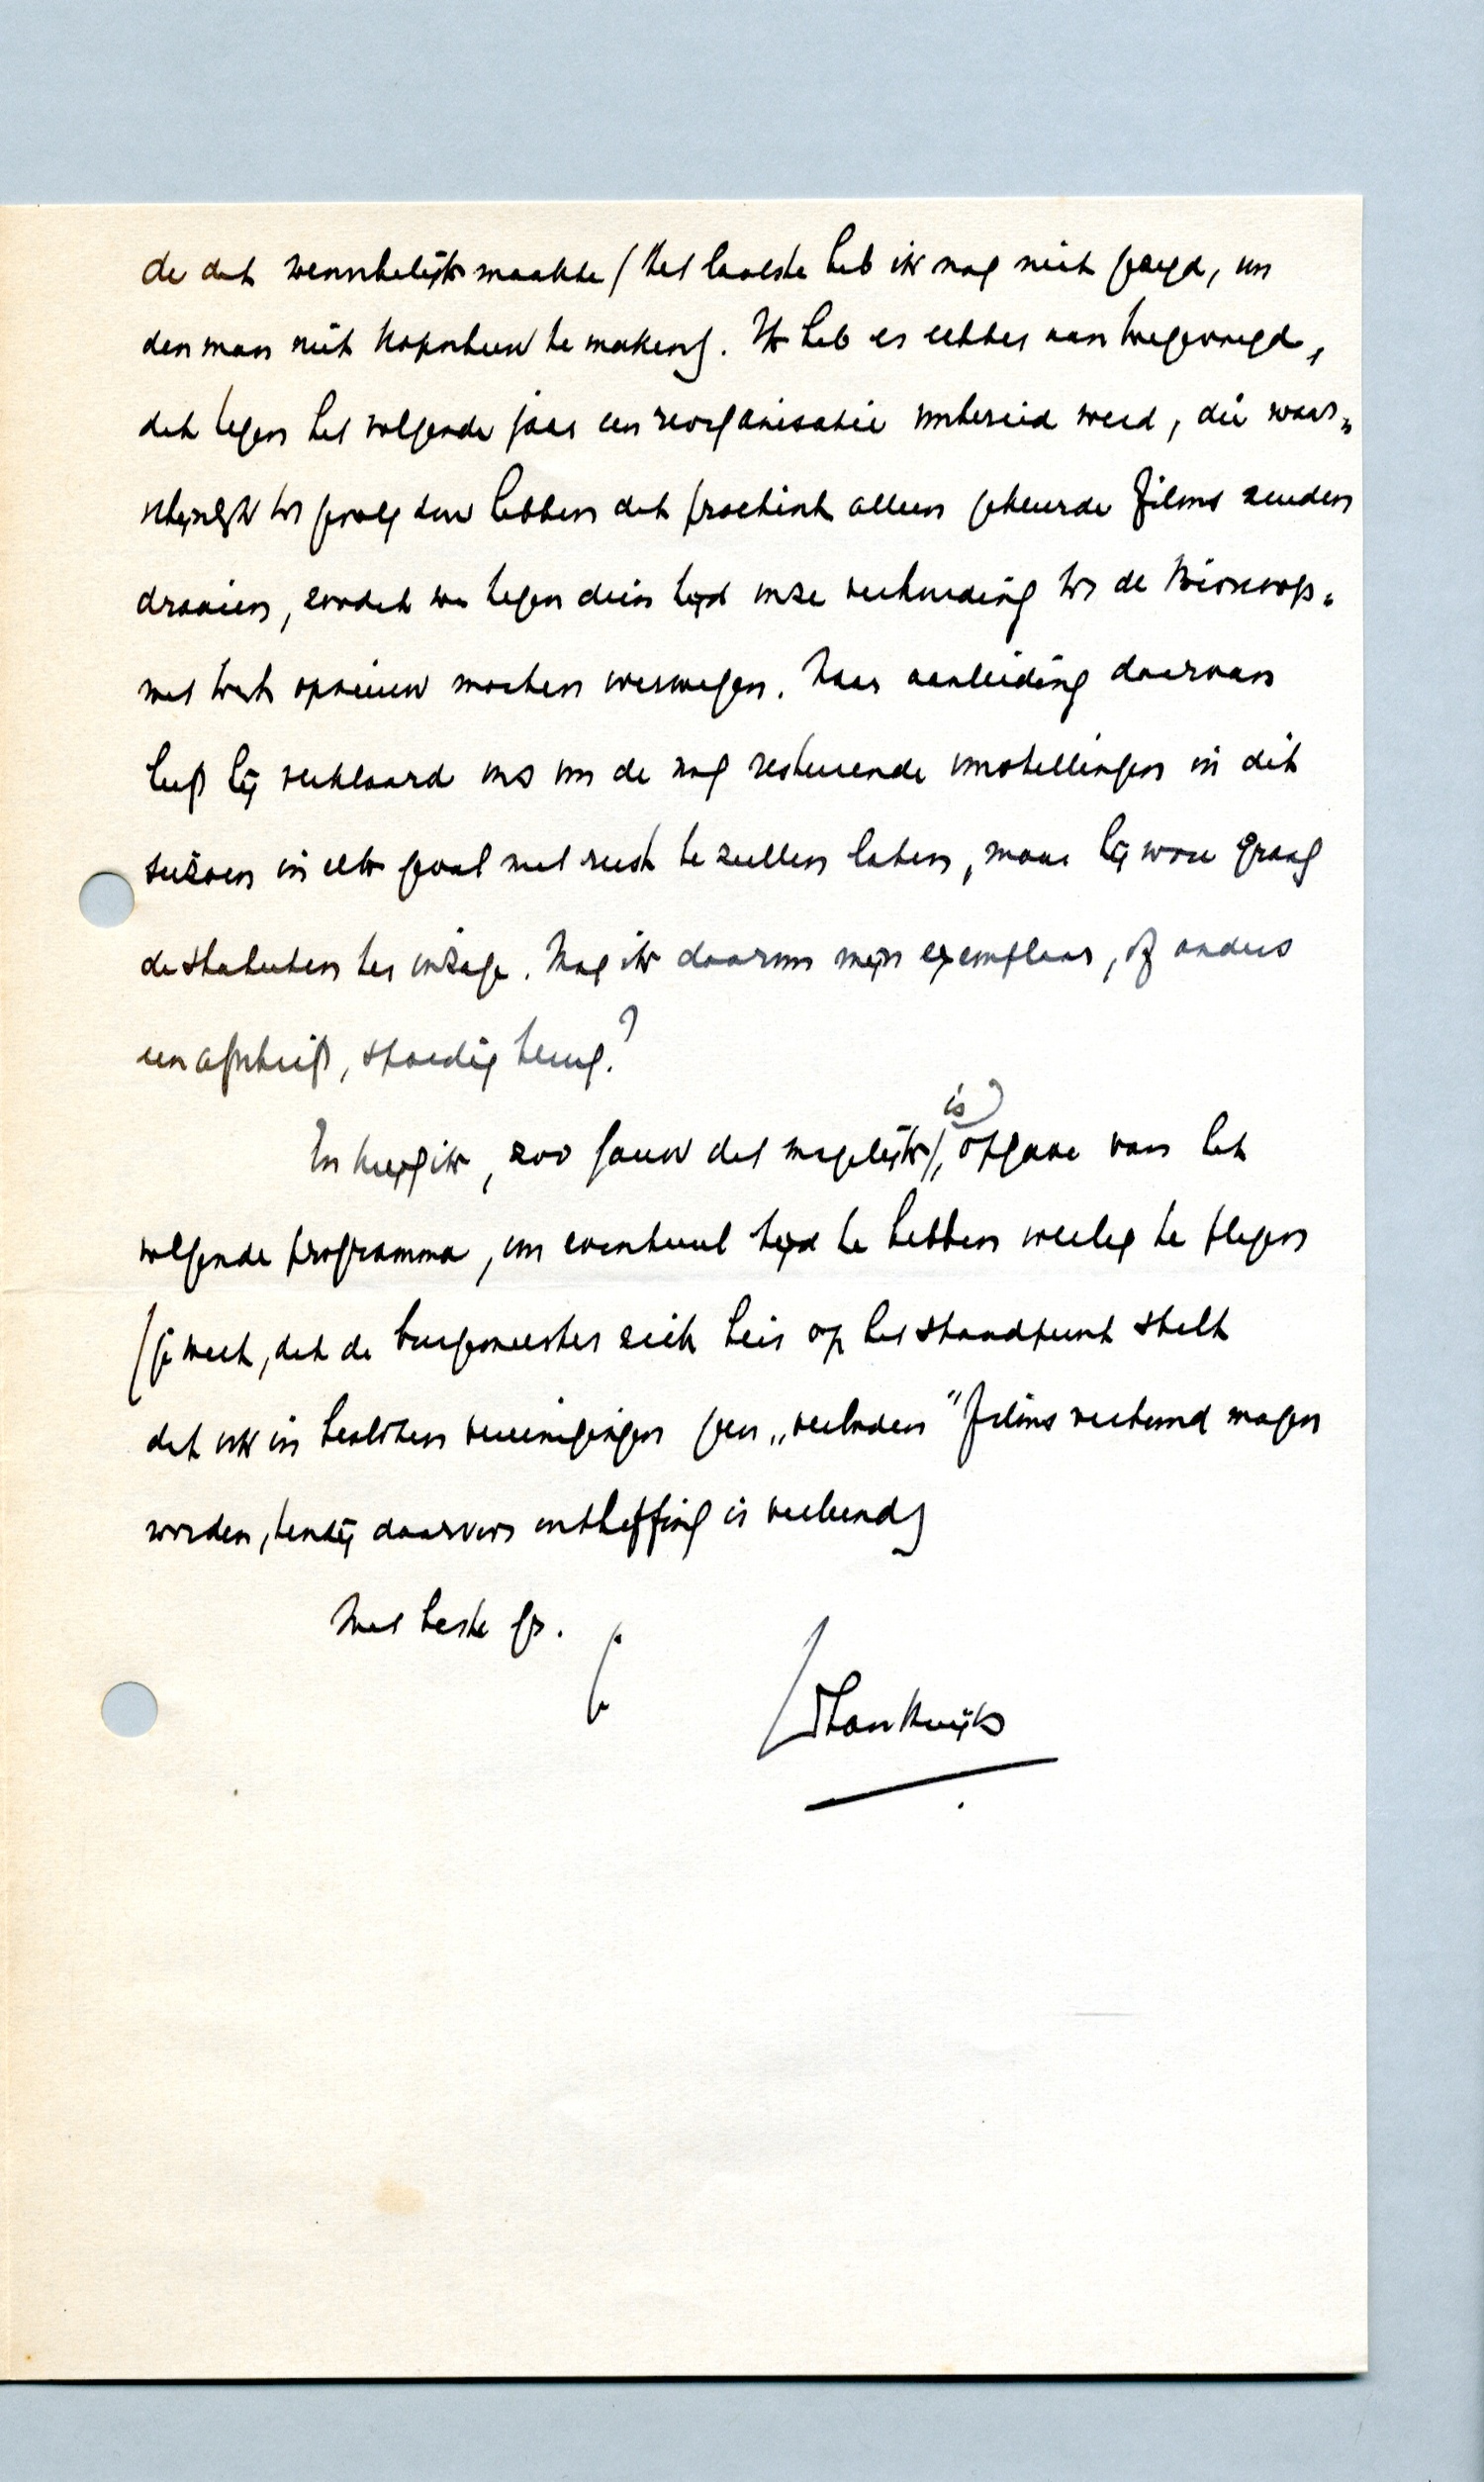 de dat wenschelijk maakte (het laatste heb ik nog niet gezegd, om
den man niet kopschuw te maken). Ik heb er echter aan toegevoegd,
dat tegen het volgende jaar een reorganisatie voorbereid werd, die waar„
schijnlijk tot gevolg zou hebben dat practisch alleen gekeurde films zouden
draaien, zoodat we tegen dien tijd onze verhouding tot de Bioscoop„
wet toch opnieuw moeten overwegen. Naar aanleiding daarvan
heeft hij verklaard ons om de nog resteerende voorstellingen in dit
seizoen in elk geval met rust te zullen laten, maar hij wou graag
de statuten ter inzage. Mag ik daarom mijn exemplaar, of anders
een afschrift, spoedig terug?
En krijg ik, zoo gauw dat mogelijk is, opgave van het
volgende programma, om eventueel tijd te hebben overleg te plegen
(je weet, dat de burgemeester zich hier op het standpunt stelt
dat ook in besloten vereenigingen geen „verboden" films vertoond mogen
worden, tenzij daarvoor ontheffing is verleend)
Met beste gr.
t.t.